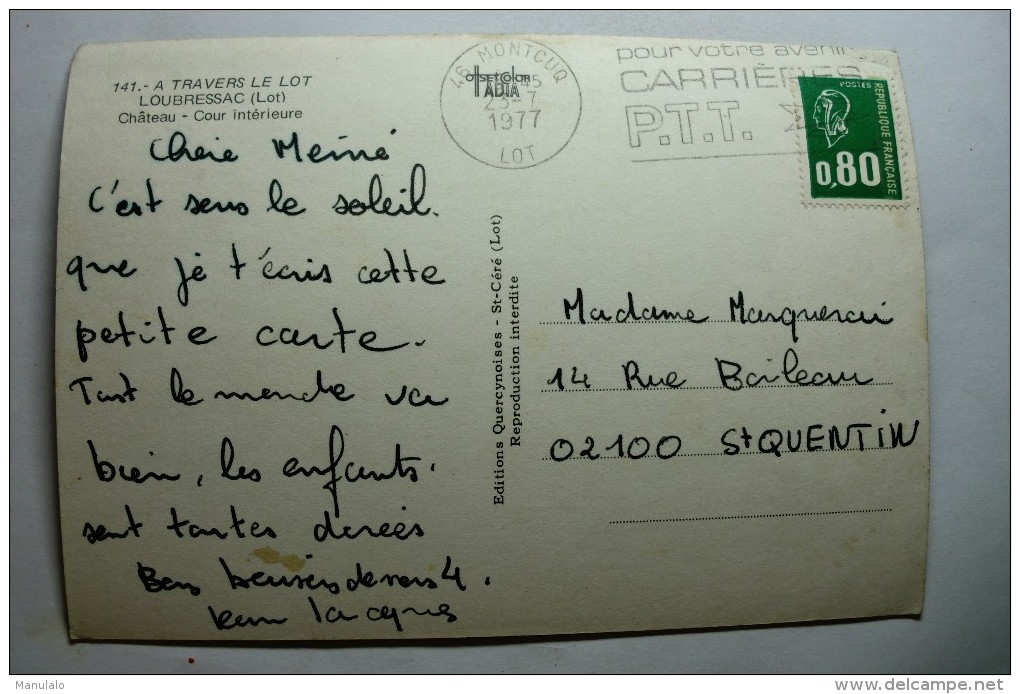 141.- A TRAVERS LE LOT
LOUBRESSAC (Lot)
Château - Cour intérieure
Chère Mémé
C'est sous le soleil.
que je t'écris cette
petite carte.
Tout le monde va
bien, les enfants.
sont toutes dorées
Bons baisers de nous 4.
Jean Jacques
Editions Quercynoises - St-Céré (Lot)
Reproduction interdite
46 MONTCUQ
45
23-7
1977
LOT
OFFSETCOLOR
ADIA
pour votre avenir
CARRIÈRES
P.T.T.
POSTES
REPUBLIQUE FRANÇAISE
0,80
Madame
14 Rue Boileau
02100 St QUENTIN
Manulalo
www.delcampe.net